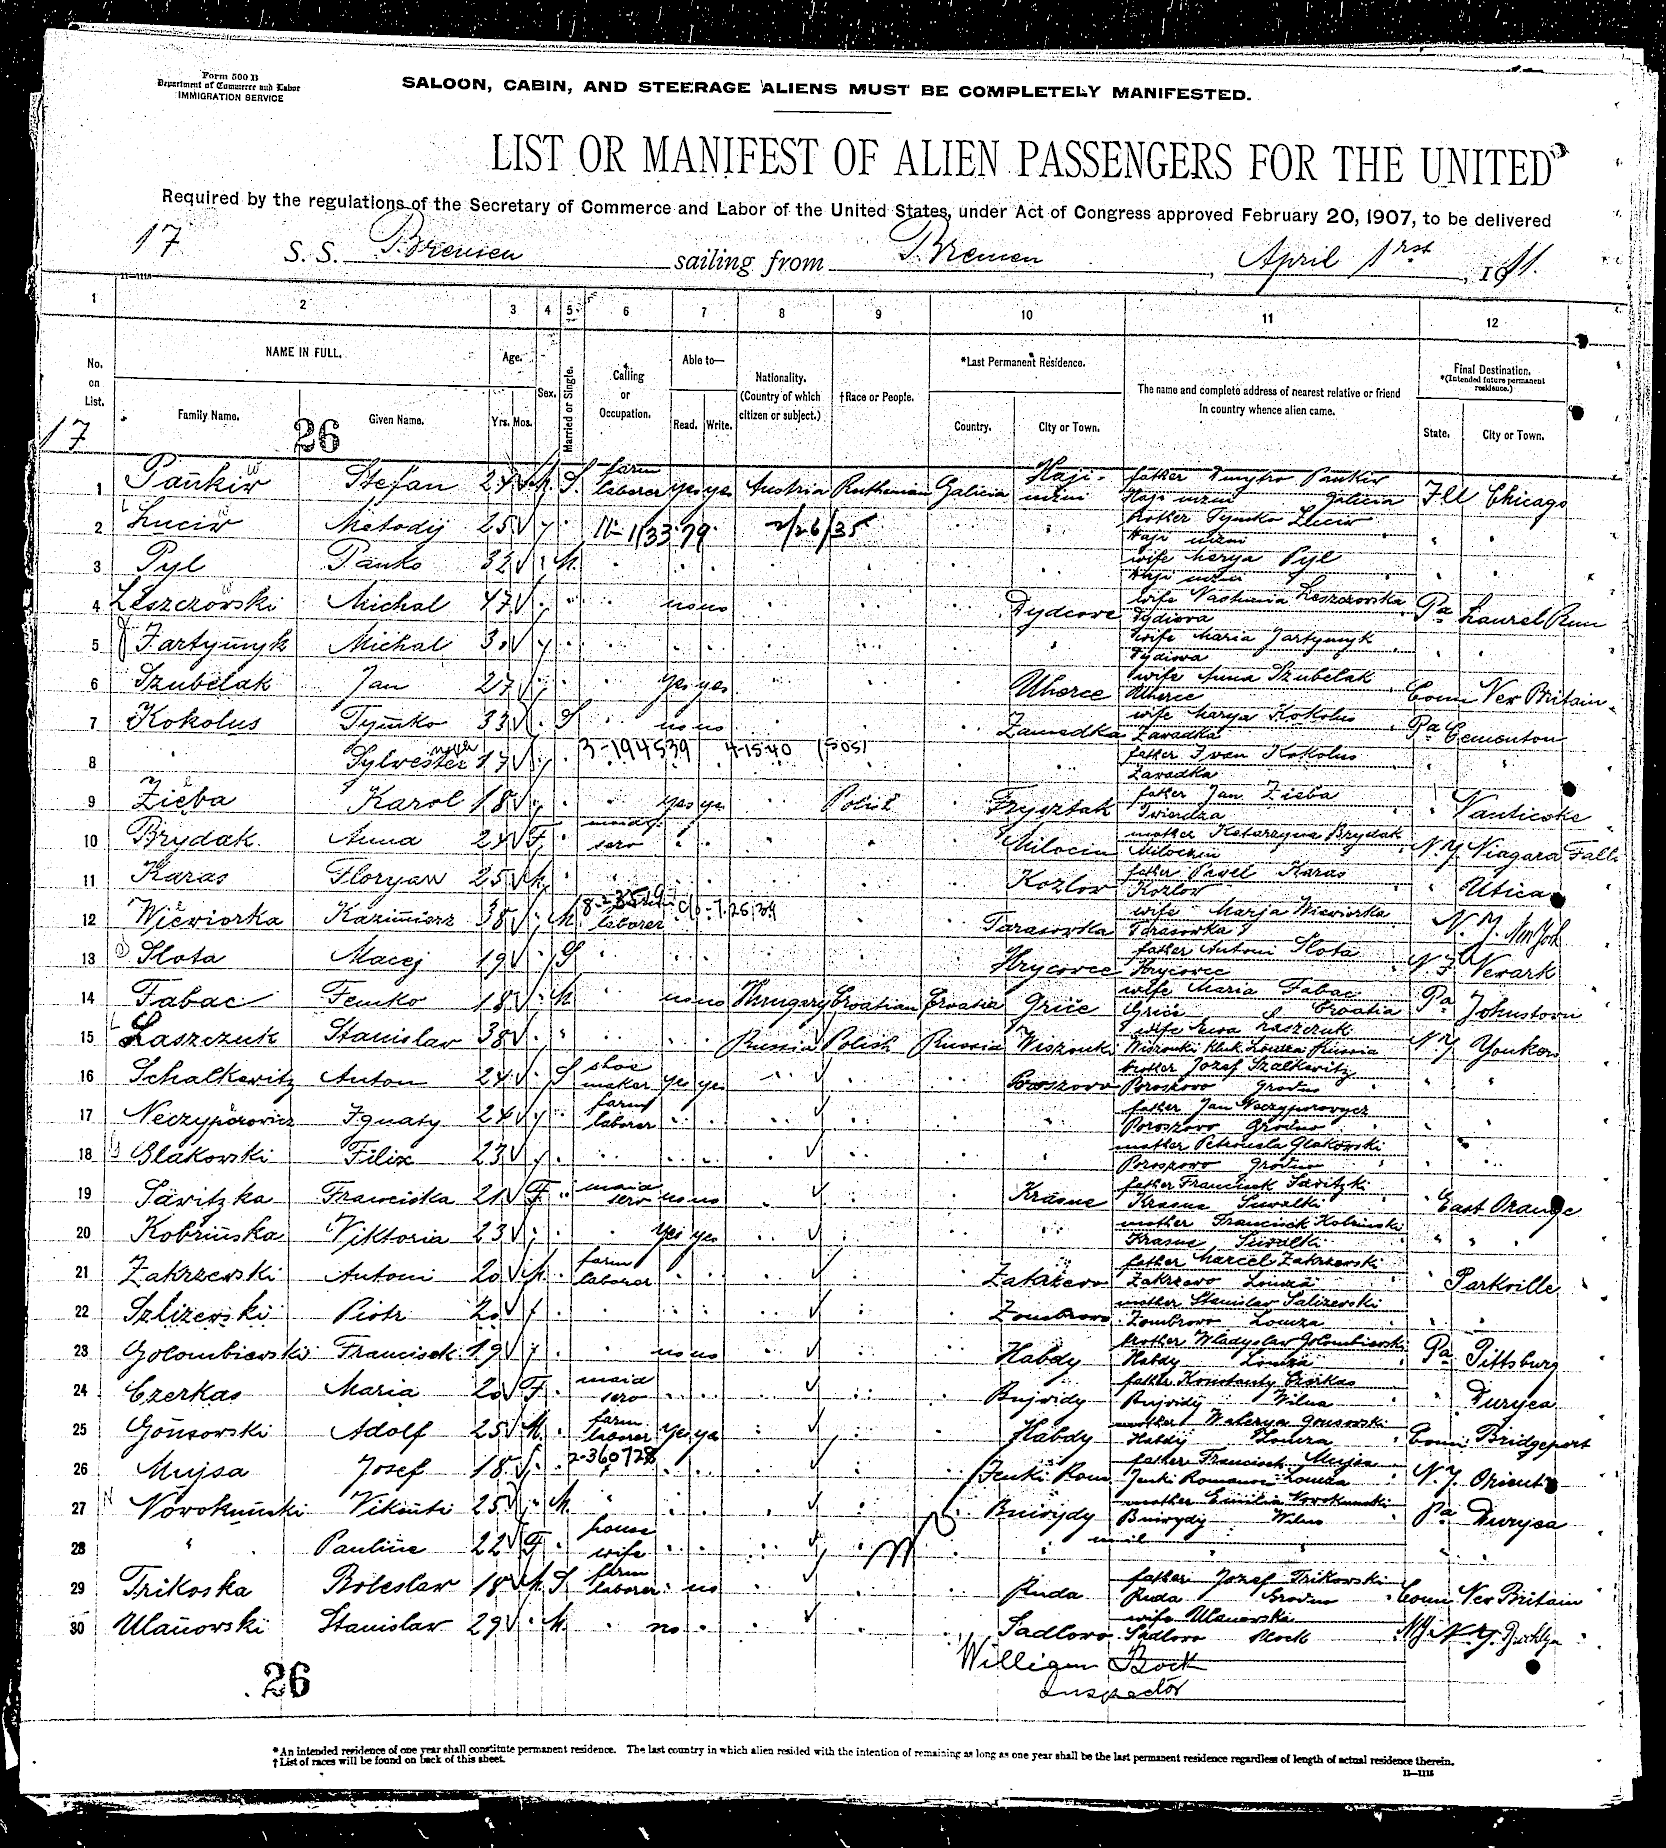 Form 500 B
Department of Commerce and Labor
IMMIGRATION SERVICE
SALOON, CABIN, AND STEERAGE ALIENS MUST BE COMPLETELY MANIFESTED.
LIST OR MANIFEST OF ALIEN PASSENGERS FOR THE UNITED
Required by the regulations of the Secretary of Commerce and Labor of the United States, under Act of Congress approved February 20, 1907, to be delivered
17 S. S. Bremen sailing from Bremen, April 1rst, 1911.
11-1115
1 2 3 4 5 6 7 8 9 10 11 12
No. on List. NAME IN FULL. Age. Sex. Married or Single. Calling or Occupation. Able to— Nationality. (Country of which citizen or subject.) †Race or People. *Last Permanent Residence. The name and complete address of nearest relative or friend in country whence alien came. Final Destination. *(Intended future permanent residence.)
Family Name. Given Name. Yrs. Mos. Read. Write. Country. City or Town. State. City or Town.
17 26
1 Pankiw Stefan 24 M. S. farm laborer yes yes Austria Ruthenian Galicia Haji- nizni father Dmytro Pankiw Haji nizni Galicia Ill Chicago
2 Luciw Metodij 25 11-1/33 79 2/26/35 brother Tymko Luciw Haji nizni
3 Pyl Panko 32 M. wife Marya Pyl Haji nizni
4 Leszczowski Michal 47 no no Dydiowe wife Leszczowska Dydiowa Pa Laurel Run
5 Jartymyk Michal 30 wife Maria Jartymyk Dydiowa
6 Szubelak Jan 27 yes yes Uherce wife Anna Szubelak Uherce Conn New Britain
7 Kokolus Tymko 33 S no no Zawadka wife Marya Kokolus Zawadka Pa Cementon
8 " Sylwester 17 3-194539 4-15-40 father Ivan Kokolus Zavadka
9 Zieba Karol 18 yes yes Polish Frysztak father Jan Zieba Twierdza Nanticoke
10 Brydak Anna 24 F serv Milocin mother Katarzyna Brydak Milocin N.Y. Niagara Falls
11 Karas Floryan 25 M. Kozlow father Pavel Karas Kozlow Utica
12 Wieviorka Kazimierz 38 M laborer Tarasowka wife Marja Wieviorka Tarasowka N.Y. New York
13 Slota Macej 19 S Hrycowce father Antoni Slota Hrycowce N.J. Newark
14 Fabac Femko 18 M no no Hungary Croatian Croatia Griče wife Maria Fabac Griče Croatia Pa Johnstown
15 Laszczuk Stanislaw 38 Russia Polish Russia Wiszonki wife Ewa Laszczuk Wiszonki Lomza Russia N.Y. Yonkers
16 Schalkewitz Anton 24 S shoe maker yes yes Poroszowo brother Jozef Szalkewitz Poroszowo Grodno
17 Neczyporowicz Ignaty 24 farm laborer father Jan Neczyporovycz Poroszowo Grodno
18 Glakowski Filix 23 mother Petronela Glakowski Poroszowo Grodno
19 Savitzka Franciska 21 F maid serv no no Krasne father Francisek Savitzki Krasne Suwalki East Orange
20 Kobrinska Viktoria 23 yes yes mother Francisek Kobrinski Krasne Suwalki
21 Zakrzewski Antoni 20 M. farm laborer Zakrzewo father Marcel Zakrzewski Zakrzewo Lomza Parkville
22 Szlizewski Piotr 20 Zombrowo mother Stanislav Salizewski Zombrowo Lomza
23 Golombiewski Francisek 19 no no Habdy brother Wladyslav Golombiewski Habdy Lomza Pa Pittsburg
24 Czerkas Maria 20 F. maid serv Bujvidy father Konstanty Czerkas Bujvidy Wilna Duryea
25 Gonsowski Adolf 25 M. farm laborer yes yes Habdy mother Waleryа Gonsowski Habdy Lomza Conn Bridgeport
26 Mujsa Josef 18 2-360728 Jenki Rom father Francisek Mujsa Jenki Romanow Lomza N.Y. Orient
27 Novokunski Vikinti 25 M. Buivydy mother Emilia Novokunski Buivydy Wilno Pa Duryea
28 " Pauline 22 F house wife
29 Trikoska Boleslaw 18 M. S farm laborer no Ruda father Jozef Trikowski Ruda Grodno Conn New Britain
30 Ulanowski Stanislaw 29 M. no Sadlowo wife Ulanowski Sadlowo Plock N.Y. Brooklyn
26
William Bock
Inspector
*An intended residence of one year shall constitute permanent residence. The last country in which alien resided with the intention of remaining as long as one year shall be the last permanent residence regardless of length of actual residence therein.
†List of races will be found on back of this sheet.
11-1115